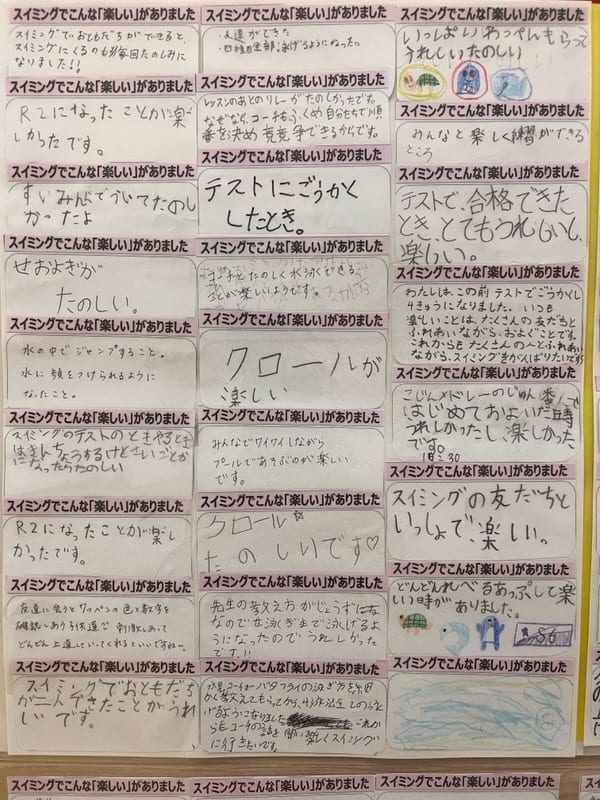 スイミングでこんな「楽しい」がありました
スイミングでおともだちができると、
スイミングにくるのも毎回たのしみに
なりました!!
スイミングでこんな「楽しい」がありました
R2になったことが楽
しかったです。
スイミングでこんな「楽しい」がありました
すいみんぐでういてたのし
かったよ
スイミングでこんな「楽しい」がありました
せおよぎが
たのしい。
スイミングでこんな「楽しい」がありました
水の中でジャンプすること。
水に顔をつけられるように
なったこと。
スイミングでこんな「楽しい」がありました
スイミングのテストのときやるとき
はきんちょうするけどさいごとか
になったらたのしい
スイミングでこんな「楽しい」がありました
R2になったことが楽し
かったです。
スイミングでこんな「楽しい」がありました
友達に会うとワッペンの色と数字を
確認しあう子供達で刺激しあって
どんどん上達していってくれるといいですねー。
スイミングでこんな「楽しい」がありました
スイミングでおともだち
が二人できたことがうれし
いです。
スイミングでこんな「楽しい」がありました
スイミングでこんな「楽しい」がありました
・友達ができた
・四種目全部泳げるようになった。
スイミングでこんな「楽しい」がありました
レッスンのあとのリレーがたのしかったです。
なぜなら、コーチもふくめ自分たちで順
番を決め競争できるからです。
スイミングでこんな「楽しい」がありました
テストにごうかく
したとき。
スイミングでこんな「楽しい」がありました
コーチとたのしく水泳できる
ことが楽しいようです。
スイミングでこんな「楽しい」がありました
クロールが
楽しい
スイミングでこんな「楽しい」がありました
みんなでワイワイしながら
プールであそぶのが楽しい
です。
スイミングでこんな「楽しい」がありました
クロール☆
たのしいです♡
スイミングでこんな「楽しい」がありました
先生の教え方がじょうずにな
なので 泳ぎまで泳げるよ
うになったのでうれしかった
です!!
スイミングでこんな「楽しい」がありました
コーチがバタフライの泳ぎ方を細
かく教えてもらってから、
げるようになりました これか
らもコーチの 楽しくスイミング
に行きたいです。
スイミングでこんな「楽しい」がありました
スイミングでこんな「楽しい」がありました
いっぱいわっぺんもらって
うれしいたのしい
スイミングでこんな「楽しい」がありました
みんなと楽しく練習ができる
ところ
スイミングでこんな「楽しい」がありました
テストで、合格できた
とき、とてもうれしいし、
楽しい。
スイミングでこんな「楽しい」がありました
わたしは、この前テストでごうかくし
4きゅうになりました。いつも
楽しいことは、たくさんの友だちと
ふれあいながら、およぐことです。
これからもたくさんの人とふれあい
ながら、スイミングをがんばりたいです
スイミングでこんな「楽しい」がありました
こじんメドレーのじゅん番で
はじめておよいだ時
うれしかったし、楽しかった
です。
1:30
スイミングでこんな「楽しい」がありました
スイミングの友だちと
いっしょで楽しい。
スイミングでこんな「楽しい」がありました
どんどんれべるあっぷして楽
しい時がありました。
S6
スイミングでこんな「楽しい」がありました
スイミングでこんな「楽しい」がありました